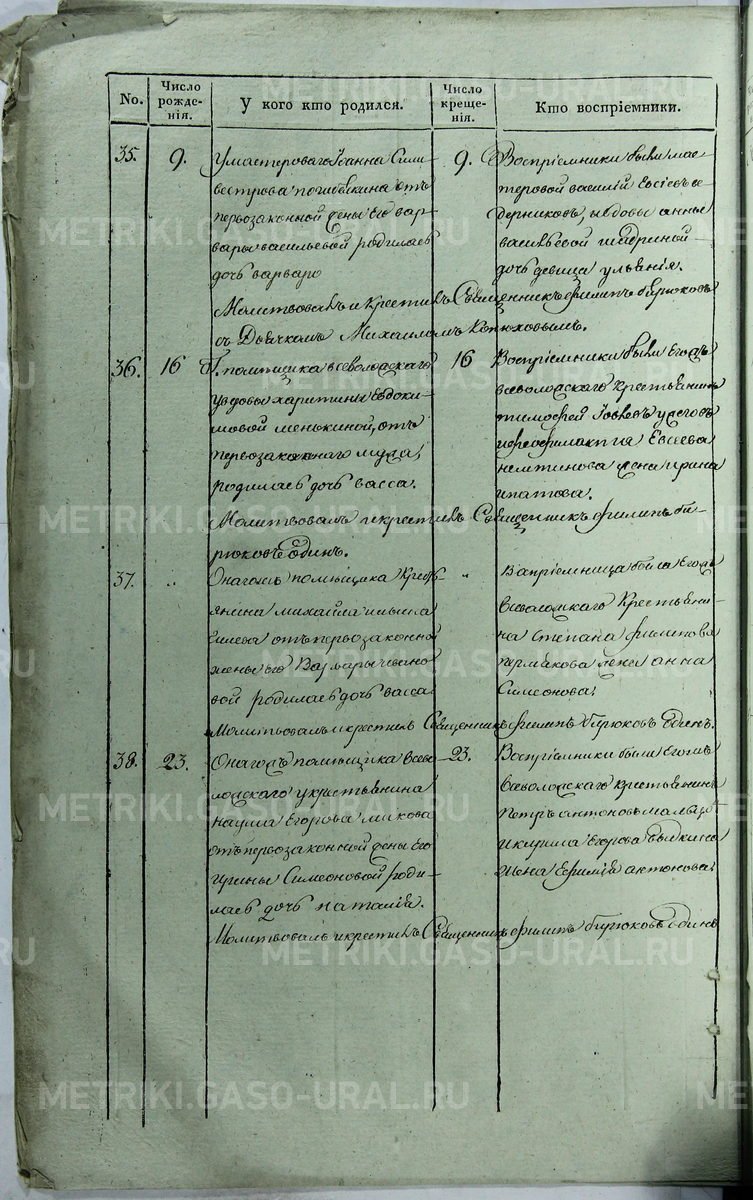 No.
Число рожде-
нія.
У кого кто родился.
Число креще-
нія.
Кто воспріемники.
35.
9.
У мастероваго Іоанна Сили
вестрова погибёнкина отъ
первозаконной жены его вар-
вары васильевой родилась
дочь варвара
9.
Воспріемники были мас-
теровой василій Евсіевъ
дерниковъ, и вдовы анны
васильевой шадриной
дочь девица ульянія.
Молитвовалъ и крестилъ Священникъ филипъ бирюковъ
съ Дьячкомъ Михаиломъ Конюховымъ.
36.
16
Г. помѣщика всеволодскаго
у вдовы харитиніи Евдоки-
мовой менькиной, отъ
первозаконнаго мужа,
родилась дочь васса.
16
Воспріемники были Егожъ
всеволодскаго крестьянинъ
тимофей Іовлевъ
и феофилактія Евсіева
немтинова жена ирина
ипатова.
Молитвовалъ и крестилъ Священникъ филипъ би-
рюковъ Единъ.
37.
„
Онагожъ помѣщика Крестъ-
янина михайла
отъ первозаконной
жены его
вой родилась дочь васса
„
Вапріемница была Егожъ
Всеволодскаго Крестьяни-
на Степана филипова
ермакова жена анна
Симеонова.
Молитвовалъ и крестилъ Священникъ филипъ бирюковъ Единъ.
38.
23.
Онагожъ помѣщика всево-
лодскаго у крестьянина
наума Егорова микова
отъ первозаконной жены Его
ирины Симеоновой роди-
лась дочь наталія.
23.
Воспріемники были Егожъ
Всеволодскаго крестьянинъ
Петръ антоновъ
и кирила Егорова
жена Ефимія антонова.
Молитвовалъ и крестилъ Священникъ филипъ бирюковъ Единъ
METRIKI.GASO-URAL.RU